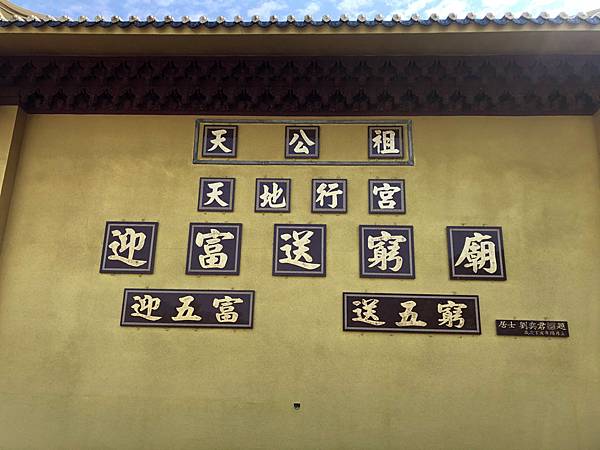 天公祖
天地行宮
迎富送窮廟
迎五富 送五窮
居士 劉奕君 題